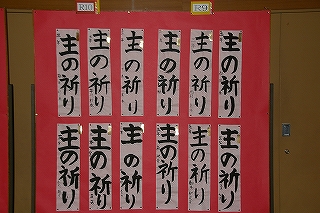 R10
R9
主の祈り
主の祈り
主の祈り
主の祈り
主の祈り
主の祈り
主の祈り
主の祈り
主の祈り
主の祈り
主の祈り
主の祈り